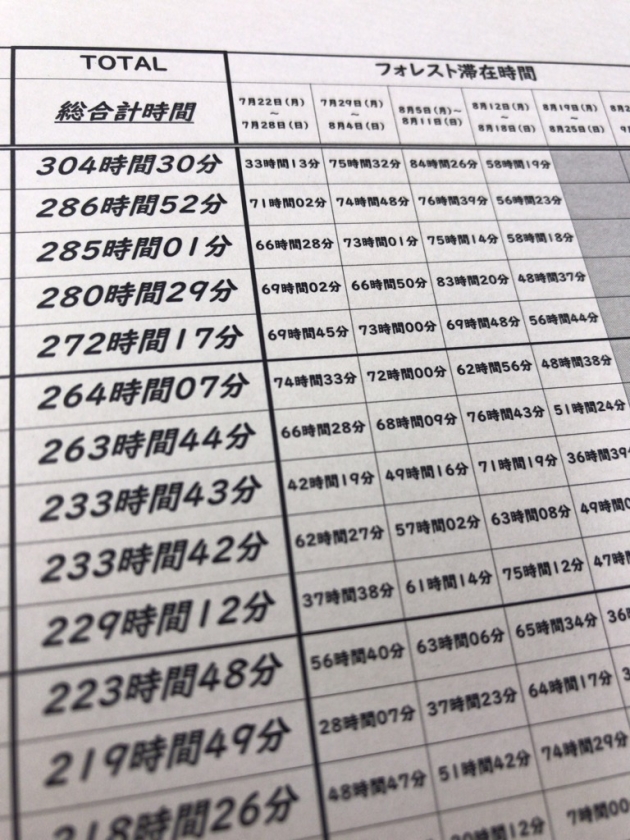 TOTAL フォレスト滞在時間
総合計時間 7月22日(月)～7月28日(日) 7月29日(月)～8月4日(日) 8月5日(月)～8月11日(日) 8月12日(月)～8月18日(日) 8月19日(月)～8月25日(日)
304時間30分 33時間13分 75時間32分 84時間26分 58時間19分
286時間52分 71時間02分 74時間48分 76時間39分 56時間23分
285時間01分 66時間28分 73時間01分 75時間14分 58時間18分
280時間29分 69時間02分 66時間50分 83時間20分 48時間37分
272時間17分 69時間45分 73時間00分 69時間48分 56時間44分
264時間07分 74時間33分 72時間00分 62時間56分 48時間38分
263時間44分 66時間28分 68時間09分 76時間43分 51時間24分
233時間43分 42時間19分 49時間16分 71時間19分 36時間39
233時間42分 62時間27分 57時間02分 63時間08分 49時間0
229時間12分 37時間38分 61時間14分 75時間12分 47時
223時間48分 56時間40分 63時間06分 65時間34分 36
219時間49分 28時間07分 37時間23分 64時間17分
218時間26分 48時間47分 51時間42分 74時間29分
時間12分 7時間00